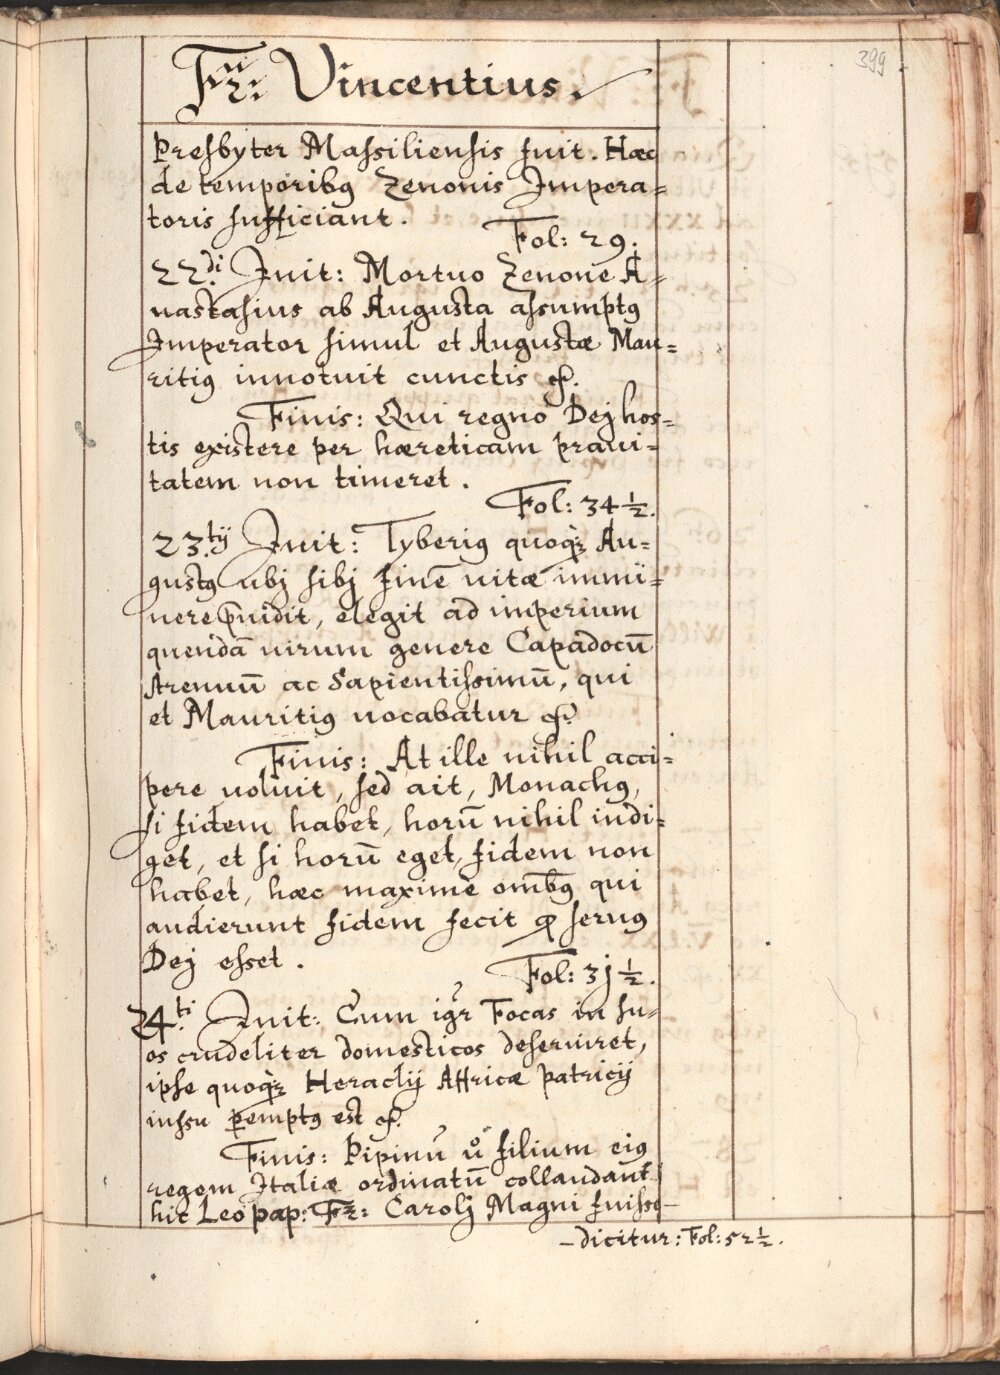 399
Fr: Vincentius.
Presbyter Massiliensis fuit. Hæc
de temporibꝰ Zenonis Impera=
toris sufficiant.
Fol: 29:
22.di Init: Mortuo Zenone A=
nastasius ab Augusta assumptꝰ
Imperator simul et Augustæ Mau=
ritiꝰ innotuit cunctis &.
Finis: Qui regno Dej hos=
tis existere per hæreticam praui=
tatem non timeret.
Fol: 34 ½.
23.tij Init: Tyberiꝰ quoqꝫ Au=
gustꝰ ubj sibj finē uitæ immi=
nere p̄uidit, elegit ad imperium
quendā uirum genere Capadocū
strenuū ac Sapientissimū, qui
et Mauritiꝰ uocabatur &.
Finis: At ille nihil acci=
pere uoluit, sed ait, Monachꝰ,
si fidem habet, horū nihil indi=
get, et si horū eget, fidem non
habet, hæc maximè omībꝰ qui
audierunt fidem fecit ꝙ seruꝰ
Dej esset.
Fol: 3j ½.
24.ti Init: Cum igr Focas in su=
os crudeliter domesticos deseruiret,
ipse quoqꝫ Heraclij Affricæ patricij
iussu ꝑemptꝰ est &.
Finis: Pipinū uº filium eiꝰ
regem Italiæ ordinatū collaudant
hic Leo pap: Fr: Carolj Magni fuisse
dicitur: Fol: 52 ½.